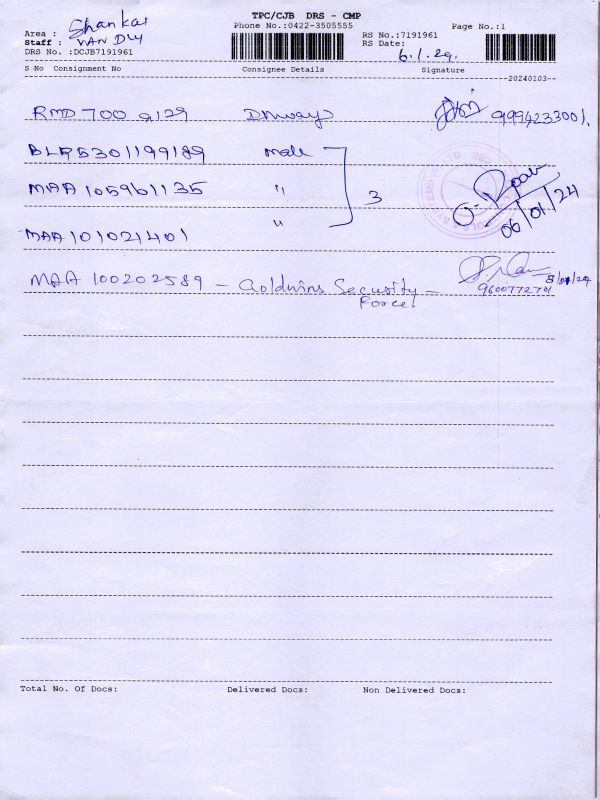 TPC/CJB DRS - CMP
Phone No.:0422-3505555
Page No.:1
Area : Shankar
Staff : VAN Dly
DRS No. :DCJB7191961
RS No.:7191961
RS Date: 6.1.24
S No Consignment No Consignee Details Signature
20240103
RMD 700 2129 9994233001
BLR5301199189
MAA 105961135 " 3
MAA 101021401 "
06/01/24
MAA 100202589 - Goldwins Security - 8/01/24
Force 9600772701
Total No. Of Docs: Delivered Docs: Non Delivered Docs: